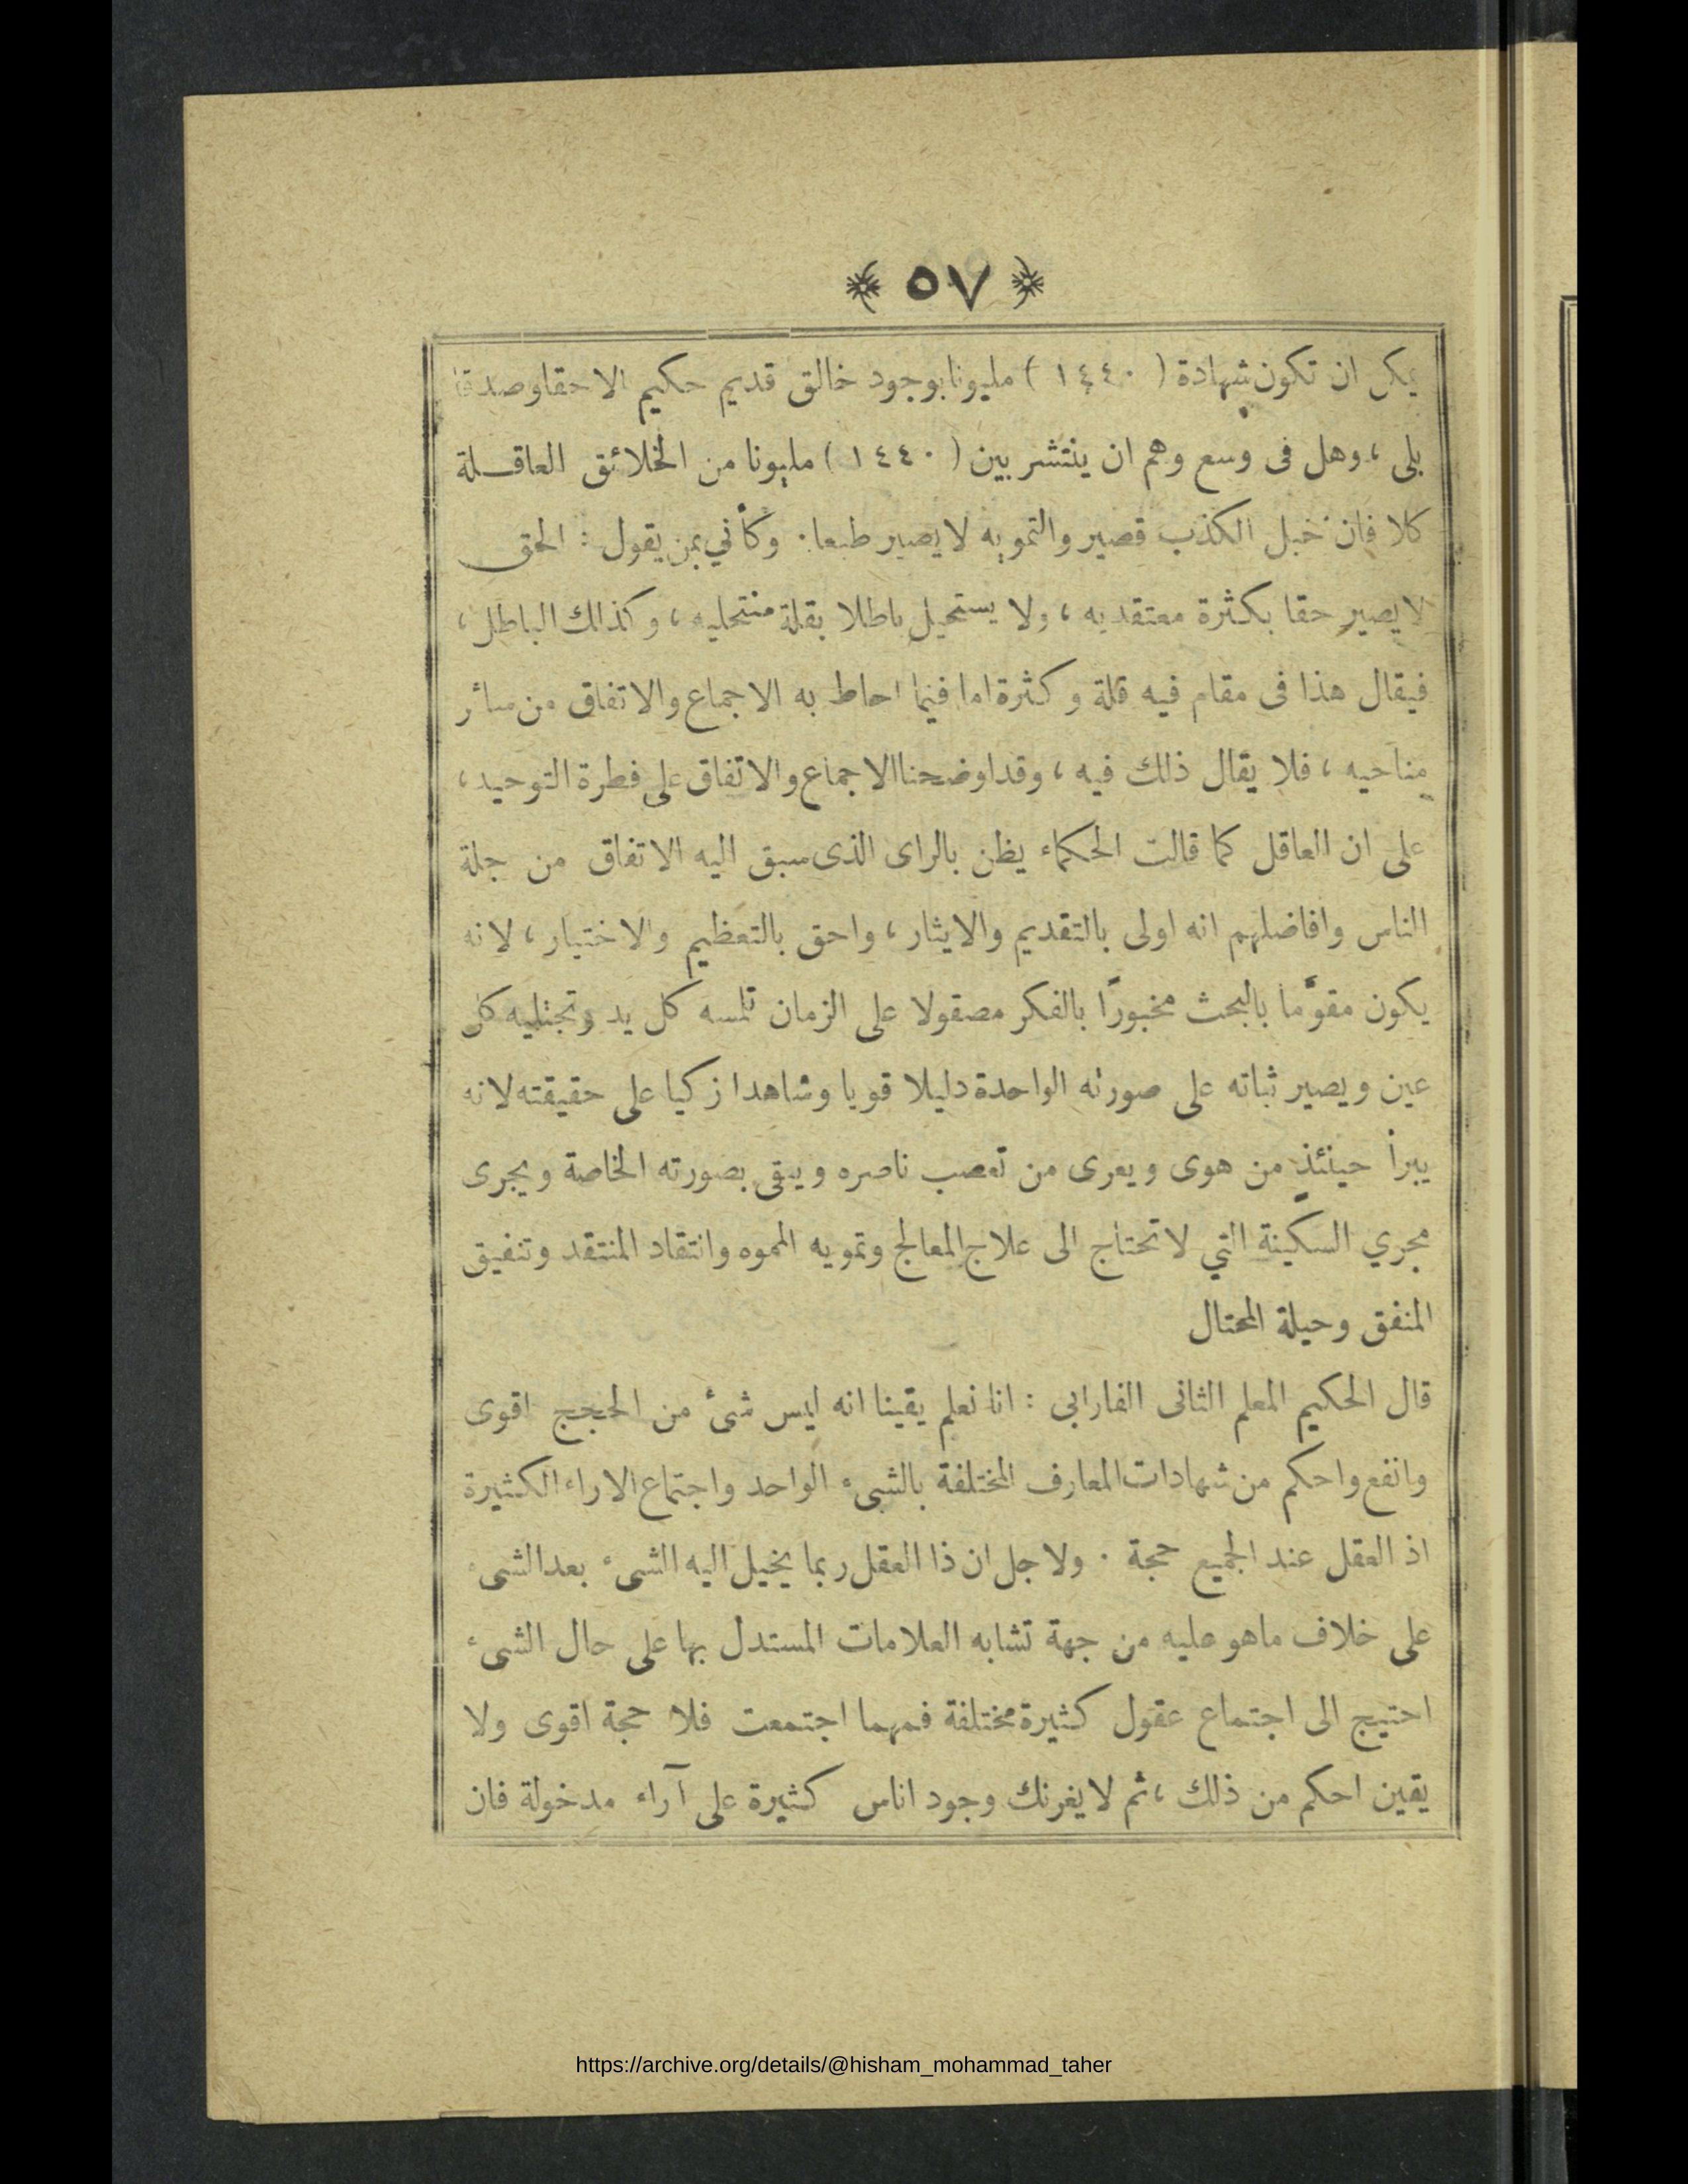 ﴿ ٥٧ ﴾
يمكن ان تكون شهادة ( ١٤٤٠ ) مليونا بوجود خالق قديم حكيم الا حقا وصدقا
بلى ، وهل فى وسع وهم ان ينتشر بين ( ١٤٤٠ ) مليونا من الخلائق العاقلة
كلا فان حبل الكذب قصير والتمويه لا يصير طبعا . وكأني بمن يقول : الحق
لا يصير حقا بكثرة معتقديه ، ولا يستحيل باطلا بقلة منتحليه ، وكذالك الباطل ،
فيقال هذا فى مقام فيه قلة وكثرة اما فيما احاط به الاجماع والاتفاق من سائر
مناحيه ، فلا يقال ذلك فيه ، وقد اوضحنا الاجماع والاتفاق على فطرة التوحيد ،
على ان العاقل كما قالت الحكماء يظن بالراى الذى سبق اليه الاتفاق من جلة
الناس وافاضلهم انه اولى بالتقديم والايثار ، واحق بالتعظيم والاختيار ، لانه
يكون مقوَّما بالبحث مخبورًا بالفكر مصقولا على الزمان تلمسه كل يد وتجتليه كل
عين ويصير ثباته على صورته الواحدة دليلا قويا وشاهدا زكيا على حقيقته لانه
يبرأ حينئذٍ من هوى ويعرى من تعصب ناصره ويبقى بصورته الخاصة ويجرى
مجري السكينة التي لا تحتاج الى علاج المعالج وتمويه المموه وانتقاد المنتقد وتنفيق
المنفق وحيلة المحتال
قال الحكيم المعلم الثانى الفارابى : انا نعلم يقينا انه ليس شئ من الحجج اقوى
وانفع واحكم من شهادات المعارف المختلفة بالشىء الواحد واجتماع الاراء الكثيرة
اذ العقل عند الجميع حجة . ولاجل ان ذا العقل ربما يخيل اليه الشىء بعد الشىء
على خلاف ماهو عليه من جهة تشابه العلامات المستدل بها على حال الشىء
احتيج الى اجتماع عقول كثيرة مختلفة فمهما اجتمعت فلا حجة اقوى ولا
يقين احكم من ذلك ، ثم لا يغرنك وجود اناس كثيرة على آراء مدخولة فان
https://archive.org/details/@hisham_mohammad_taher